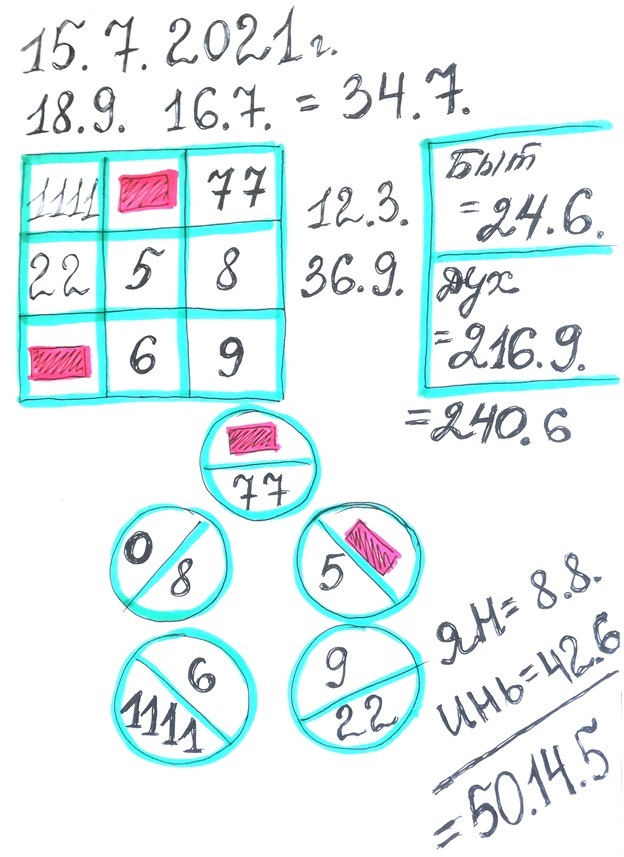 15.7.2021г.
18.9. 16.7. = 34.7.
1111 77
22 5 8
6 9
12.3.
36.9.
Быт
= 24.6.
Дух
= 216.9.
= 240.6
77
0 8
5
6
1111
9
22
ЯН = 8.8.
ИНЬ = 42.6
= 50.14.5